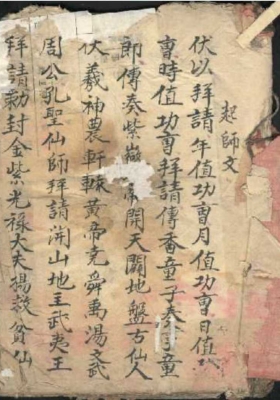 起師文
伏以拜請年值功曹月值功曹日值功
曹時值功曹拜請傳香童子奏事童
即傳奏紫微帝開天闢地盤古仙人
伏羲神農軒轅黃帝堯舜禹湯文武
周公孔聖仙師拜請開山地主武夷王
拜請勅封金紫光祿大夫楊救貧仙